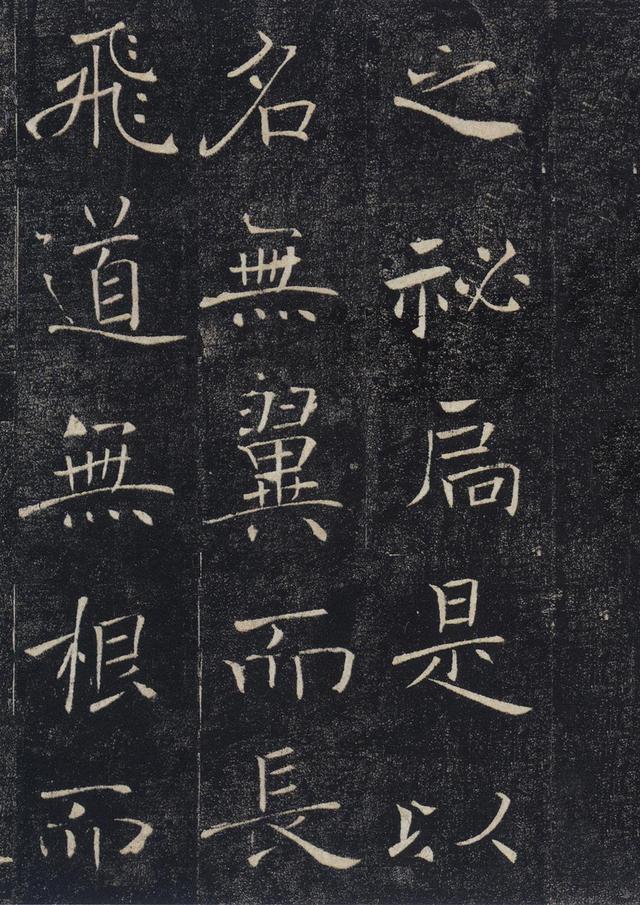 之祕扃是以
名無翼而長
飛道無根而